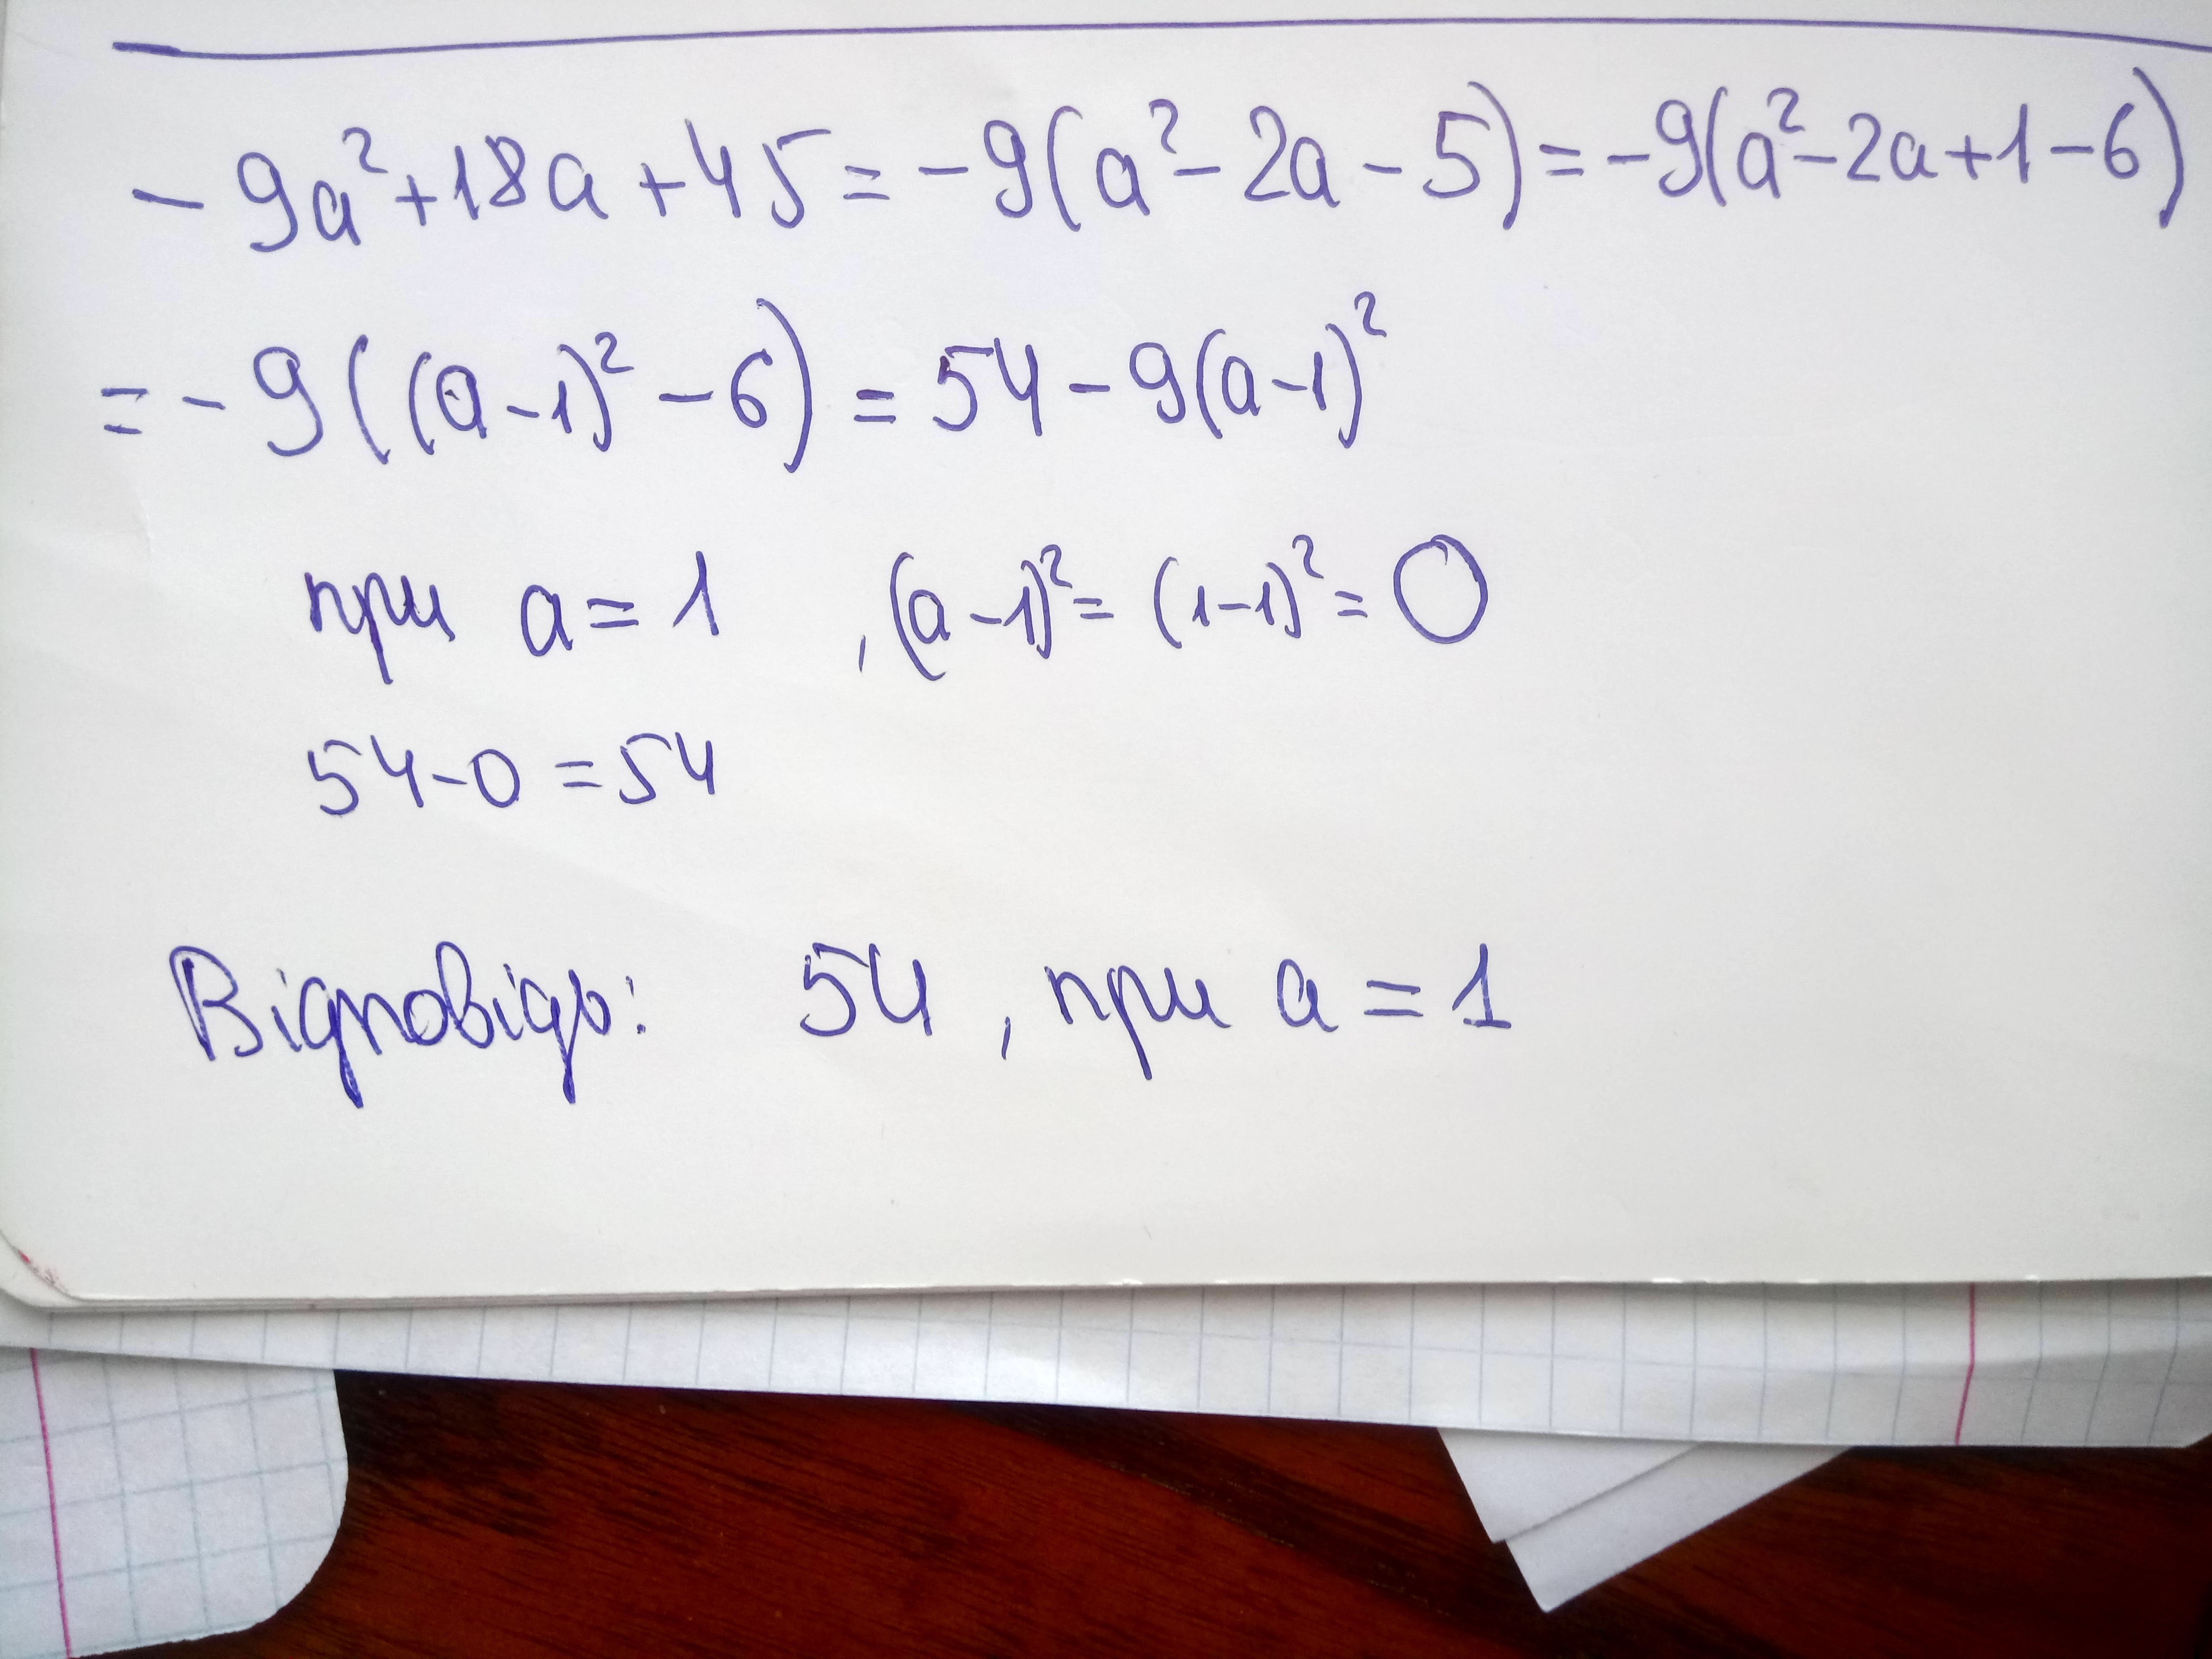 -9a²+18a+45=-9(a²-2a-5)=-9(a²-2a+1-6)
=-9((a-1)²-6)=54-9(a-1)²
при a=1 ,(a-1)²=(1-1)²=0
54-0=54
Відповідь: 54, при a=1